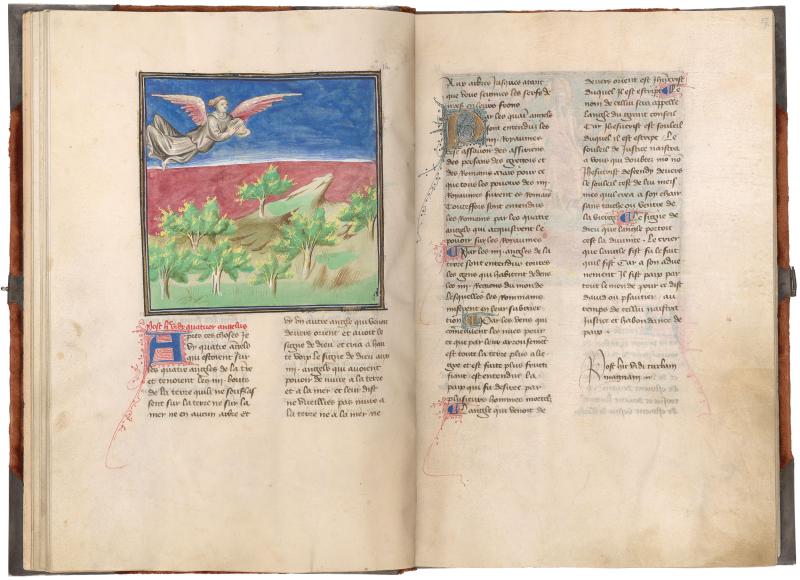 Post hec vidi quatuor angelus
Apres ces choses Je
vy quatre angels
qui estoient sur
les quatre angles de la tre
et tenoient les iiii bouts
de la terre quilz ne souflas
sent sur la terre ne sur la
mer ne en aucun arbre et
vy un autre angle qui venoit
devers orient et avoit le
signe de dieu et cria a hau
te voix le signe de dieu aux
iiii angels qui avoient
povoir de nuire a la terre
et a la mer et leur dist
ne vueillies pas nuire a
la terre ne a la mer ne
Aux arbres Jusques atant
que nous seignies les serfs de
en leurs frons
Par les quat angels
sont entendus les
iiii Royaumes
assavoir des assiriens
des persans des gregois et
des Romains
que tous les povoirs des iiii
Royaumes furent es Romais
Toutesfois sont entendus
les Romains par les quatre
angels qui acquistrent le
povoir sur les Royaumes
Par les iiii angles de la
terre sont entendus toutes
les gens qui habitent dedens
les iiii Regions du monde
lesquelles les Rommains
mistrent en leur subiec
tion Par les vens qui
les nues pour
ce que par leur arrousemet
est toute la terre plus ale
gre et est faite plus fructi
fiant est entendu la
paix qui fu desiree par
plusieurs hommes mortelz
Langle qui venoit de
devers orient est Jhucrist
duquel Il est escript Le
nom de cellui sera appelle
langle du grant conseil
Car Jhesucrist est souleil
duquel il est escript Le
souleil de Justice naistra
a vous qui doubtez mo no
Jhesucrist descendy devers
le souleil cest de lui meis
mes quil crea a soy chair
sans tache ou ventre de
la vierge Le signe de
dieu que langle portoit
cest la divinite Le crier
que langle fist fu le fait
quil fist Car a son adve
nement Il fist paix par
tout le monde pour ce dist
david ou psaultier au
temps de cellui naistra
Justice et habondance de
paix
Post hec vidi turbam
magnam